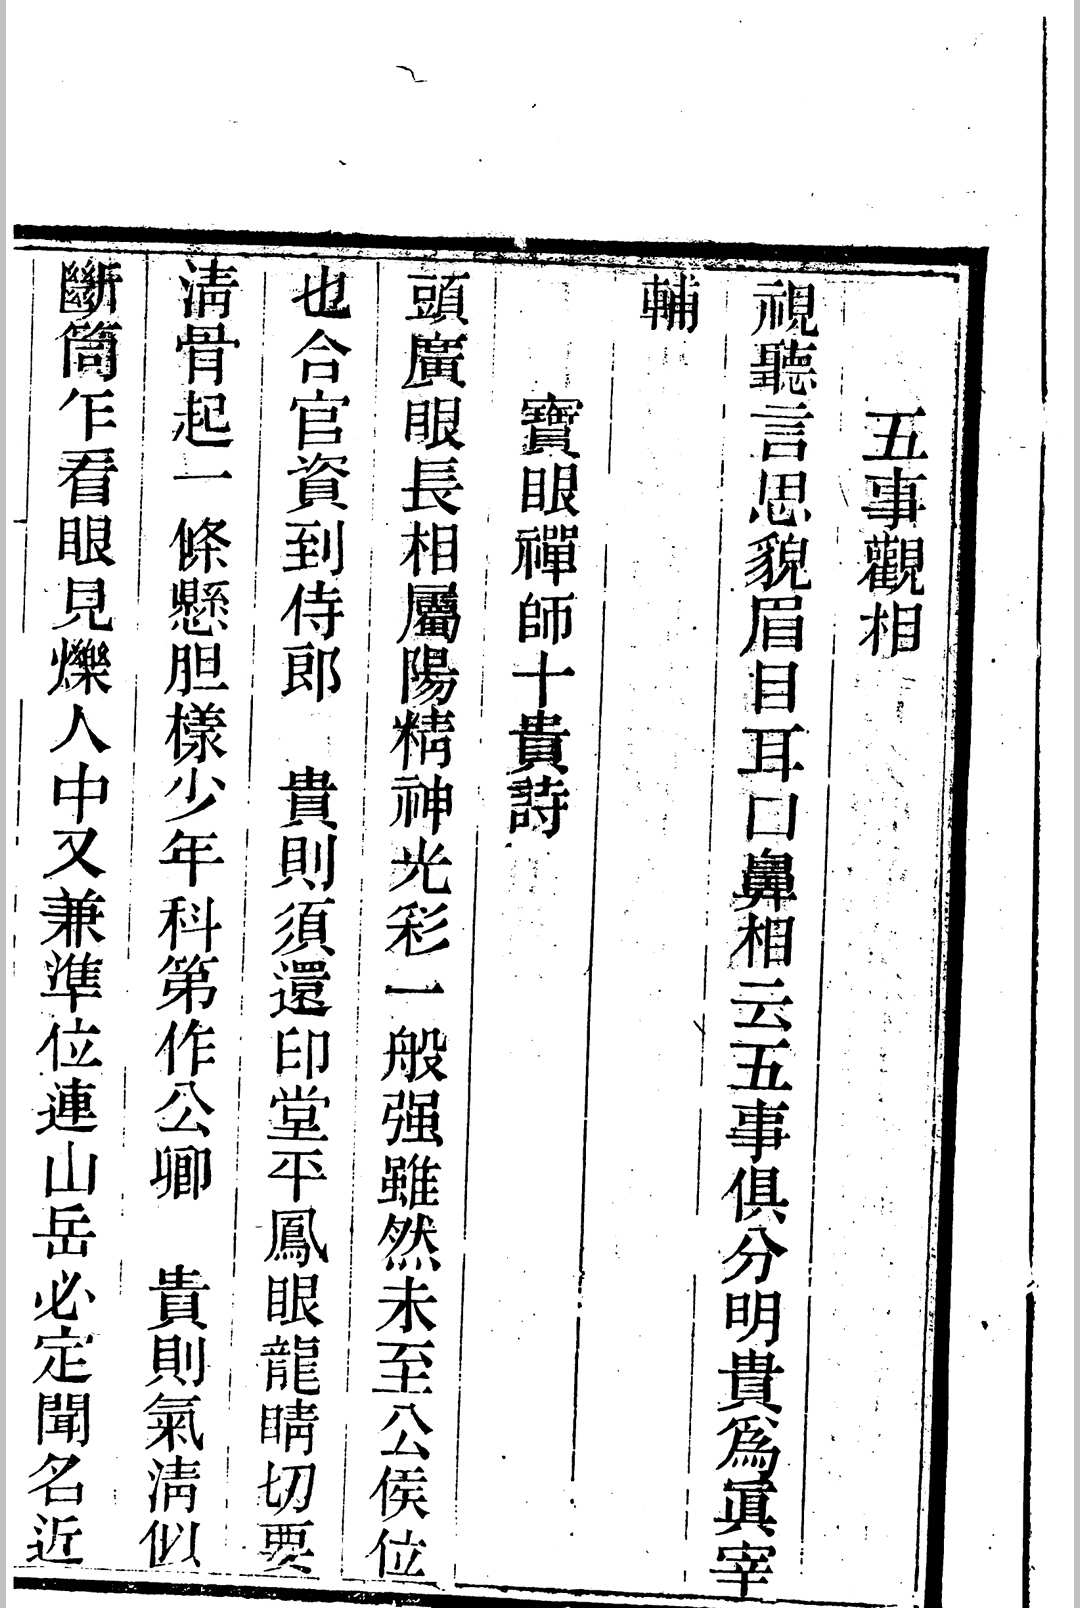 五事觀相
視聽言思貌眉目耳口鼻相云五事俱分明貴爲眞宰
輔
寶眼禪師十貴詩
頭廣眼長相屬陽精神光彩一般强雖然未至公侯位
也合官資到侍郎　貴則須還印堂平鳳眼龍睛切要
淸骨起一條懸胆樣少年科第作公卿　貴則氣淸似
斷筒乍看眼見爍人中又兼準位連山岳必定聞名近